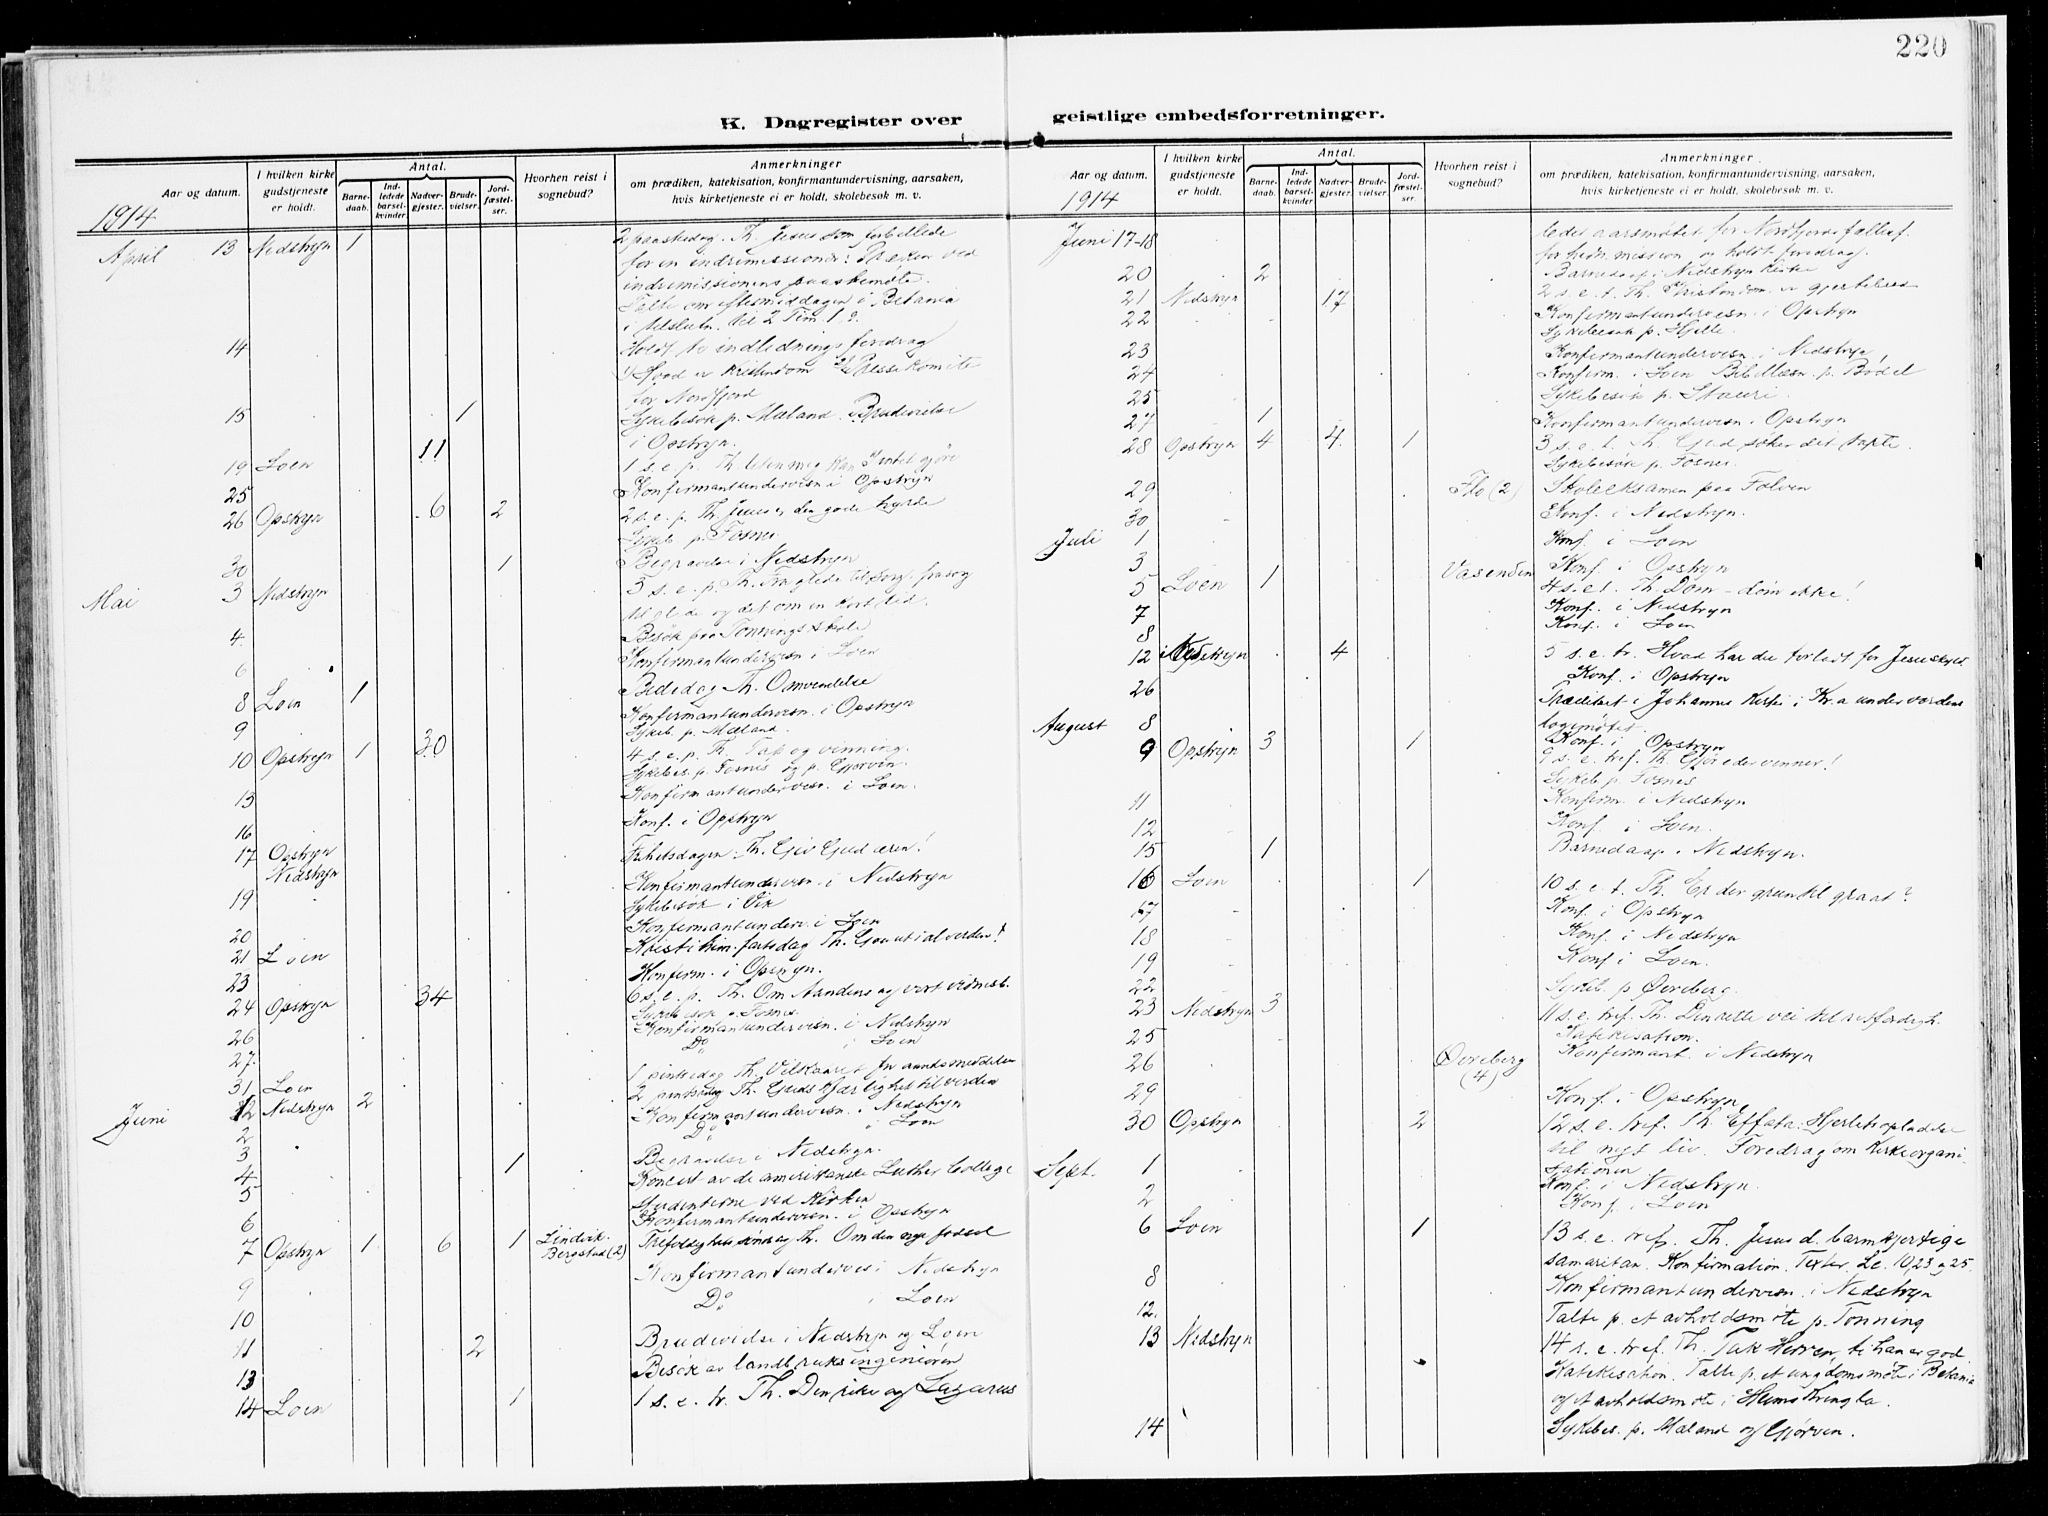 220
K. Dagregister over geistlige embedsforretninger.
Aar og datum.
I hvilken kirke gudstjeneste er holdt.
Antal.
Barne-daab.
Ind-ledede barsel-kvinder.
Nadver-gjester.
Brude-vielser.
Jord-fæstel-ser.
Hvorhen reist i sognebud?
Anmerkninger
om prædiken, katekisation, konfirmantundervisning, aarsaken,
hvis kirketjeneste ei er holdt, skolebesøk m. v.
1914
April 13 Nedstryn 1 2 paaskedag. Th. Jesus som forbillede
for en indremissionær. Præken ved
indremissionens paaskemøte.
Talte om eftermiddagen i Betania
i tilslutn. til 2 Tim. 1
14 Holdt to indledningsforedrag
for Nordfjord
15 1 Sykebesøk p. Mæland. Brudevielse
i Opstryn.
19 Loen 11 1 s. e. p. Th.
25 Konfirmantundervisn i Opstryn
26 Opstryn 6 2 2 s. e. p. Th. Jesus er den gode hyrde
Sykeb. p. Fosnes
30 1 Begravelse i Nedstryn
Mai 3 Nedstryn 3 s. e. p. Th. Fra glede til sorg, fra sorg
til glede og det om en kort tid.
4 Besøk paa Tonnings skole
6 Konfirmantundervisn. i Loen
8 Loen 1 Bededag Th. Omvendelse
9 Konfirmantundervisn. i Opstryn
Sykeb. p. Mæland.
10 Opstryn 1 30 4 s. e. p. Th. Tap og vinning.
Sykebes. p. Fosnes og p. Gjørven.
13 Konfirmantundervisn. i Loen.
16 Konf. i Opstryn
17 Opstryn Frihetsdagen: Th. Giv Gud æren!
Nedstryn
19 Konfirmantundervisn. i Nedstryn
Sykebesøk i Vik
20 Konfirmantunderv. i Loen
21 Loen Kristi him. fartsdag Th. Gaa ut i al verden!
23 Konfirm. i Opstryn.
24 Opstryn 34 6 s. e. p. Th. Om Aandens og vort vidnesb.
Sykebesøk p. Fosnes
26 Konfirmantundervisn. i Nedstryn
27 Do i Loen
31 Loen 1 pinsedag Th. Vilkaaret for aandsmeddelse
Juni 1 Nedstryn 2 2 pinsedag Th. Guds kjærlighet til verden
2 Konfirmantundervisn. i Nedstryn
3 Do i Loen
4 1 Begravelse i Nedstryn.
5 Koncert av de amerikanske Luther College
studenterne ved kirken
6 Konfirmantundervisn. i Opstryn
7 Opstryn 1 6 1 Lindvik. Bergstad (2) Trefoldighetssøndag Th. Om den nye fødsel
9 Konfirmantundervis i Nedstryn
10 Do i Loen
11 2 Brudevielse i Nedstryn og Loen
13 Besøk av landbruksingeniøren
14 Loen 1 1 s. e. tr. Th. Den rike og Lazarus
Aar og datum.
I hvilken kirke gudstjeneste er holdt.
Antal.
Barne-daab.
Ind-ledede barsel-kvinder.
Nadver-gjester.
Brude-vielser.
Jord-fæstel-ser.
Hvorhen reist i sognebud?
Anmerkninger
om prædiken, katekisation, konfirmantundervisning, aarsaken,
hvis kirketjeneste ei er holdt. skolebesøk m. v.
1914
Juni 17-18 ledet aarsmøtet for Nordfjords fællesf.
for hedn. mission og holdt foredrag.
20 2 Barnedaap i Nedstryn kirke
21 Nedstryn 17 2 s. e. t. Th. Kristendom er gjestebud
22 Konfirmantundervisn. i Opstryn
Sykebesøk p. Hjelle
23 Konfirmantundervisn. i Nedstryn
24 Konfirm. i Loen Bibellæsn. p. Bødal
25 Sykebesøk p. Skaare.
27 1 Konfirmantundervisn. i Opstryn
28 Opstryn 4 4 1 3 s. e. t. Th. Gud søker det tapte.
Sykebesøk p. Fosnes.
29 Flo (2) Skoleeksamen paa Folven
30 Konf. i Nedstryn.
Juli 1 Konf. i Loen
3 Konf. i Opstryn
5 Loen 1 Vasenden 4 s. e. t. Th. Døm - døm ikke!
7 Konf. i Nedstryn
8 Konf. i Loen
12 Nedstryn 4 5 s. e. tr. Hvad har du forladt for Jesu skyld
Konf. i Opstryn
26 Prædiket i Johannes Kirke i Kr.a under verdens
logemøtet
August 8 Konf. i Opstryn
9 Opstryn 3 1 9 s. e. tref. Th. Gjør eder venner!
Sykeb p. Fosnes
11 Konfirm. i Nedstryn
12 Konf. i Loen.
15 1 Barnedaap i Nedstryn.
16 Loen 1 10 s. e. t. Th. Er der grun til graat?
17 Konf. i Opstryn
18 Konf. i Nedstryn
19 Konf i Loen.
22 Sykeb. p Øvreberg.
23 Nedstryn 3 11 s. e. tref. Th. Den rette vei til retfærdigh.
Katekisation.
25 Konfirmant. i Nedstryn
26 Øvreberg (4)
29 Konf. i Opstryn
30 Opstryn 2 12 s. e. tref. Th. Effata: Hjertets opladelse
til nyt liv. Foredrag om kirkeorgani-
sationen
Sept. 1 Konf. i Nedstryn.
2 Konf. i Loen
6 Loen 1 13 s. e. tref. Th. Jesus d. barmhjertige
samaritan. Konfirmation. Texter. Lc. 10,23 og 25
8 Konfirmantundervisn. i Nedstryn
12. Talte p. et avholdsmøte p. Tonning
13 Nedstryn 14 s. e. tref. Th. Tak Herren, ti han er god
Katekisation. Talte p. et ungdomsmøte i Betania
og et avholdsmøte i Heimskringla.
14 Sykebes. p. Mæland og Gjørven.